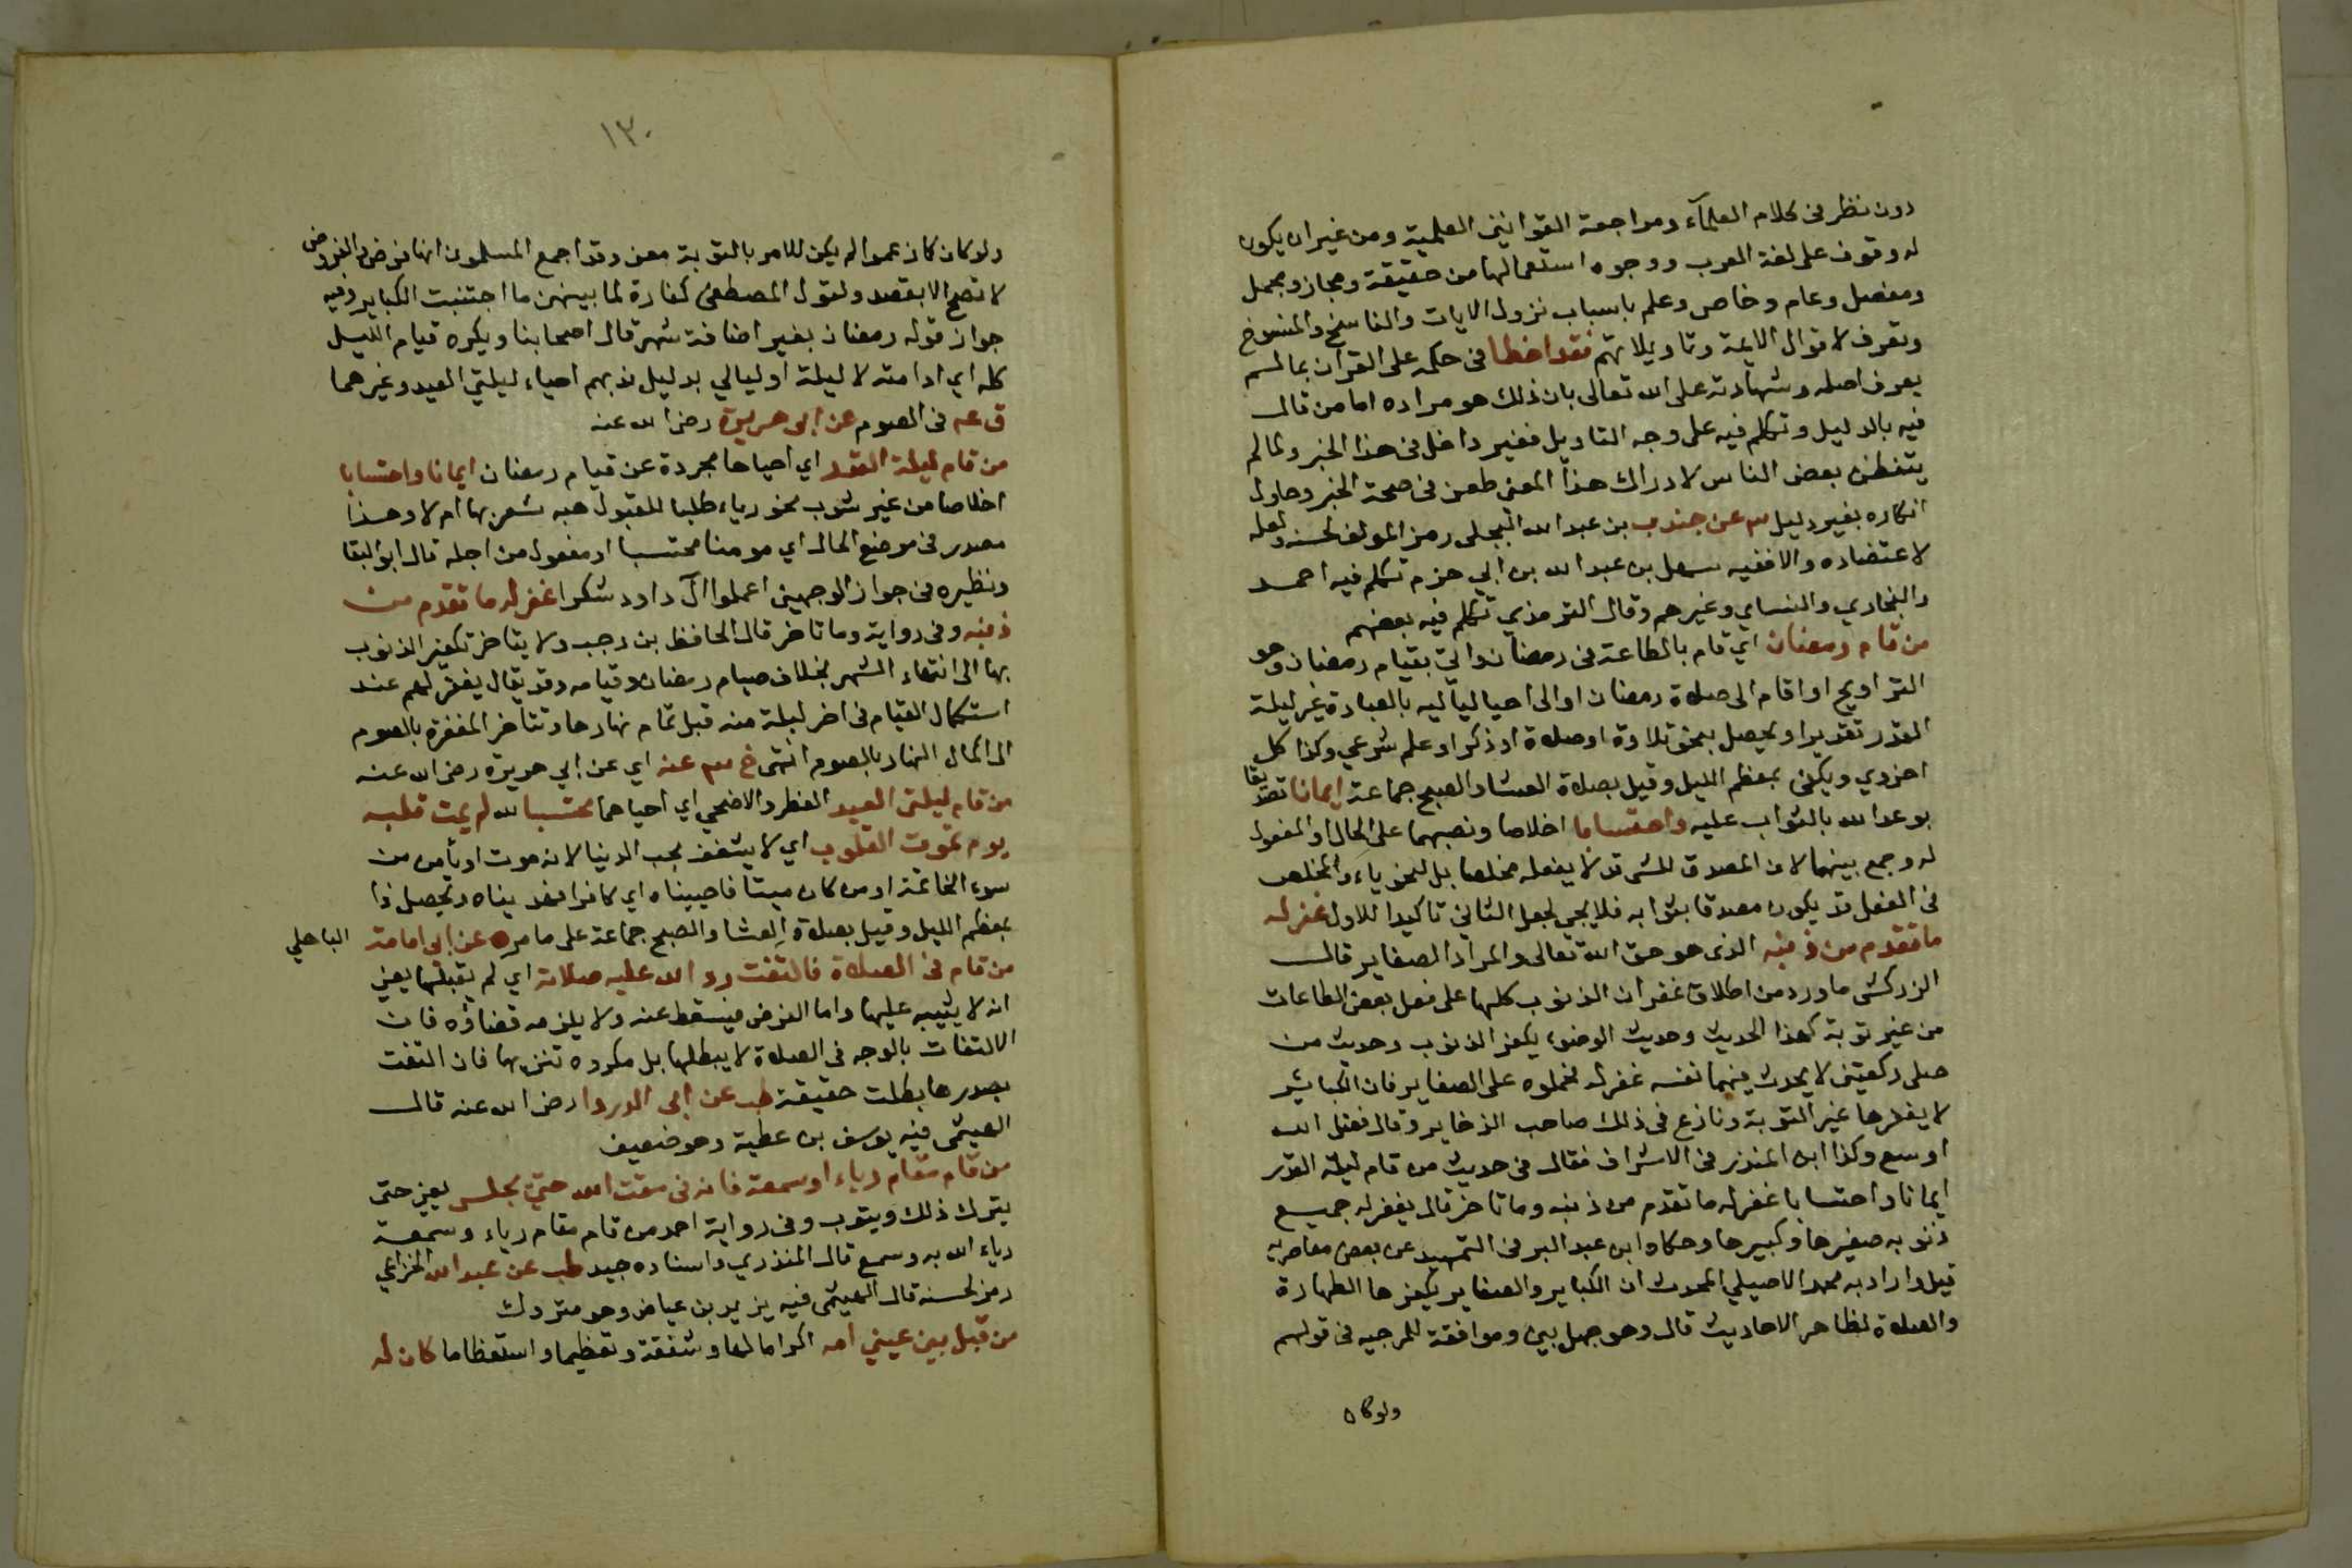 دون نظر فى كلام العلمآء ومراجعة القوانين العلمية ومن غير ان يكون
له وقوف على لغة العرب ووجوه استعمالها من حقيقة ومجاز ومجمل
ومفصل وعام وخاص وعلم باسباب نزول الايات والناسخ والمنسوخ
وتعرف لاقوال الايمة وتاويلاتهم فقد اخطا فى حكمه على القران بما لم
يعرف اصله وشهادته على الله تعالى بان ذلك هو مراده اما من قال
فيه بالدليل وتكلم فيه على وجه التاويل فغير داخل فى هذا الخبر ولما لم
يتفطن بعض الناس لادراك هذا المعنى طعن فى صحة الخبر وحاول
انكاره بغير دليل عن جندب بن عبد الله البجلى رمز المولف لحسنه ولعله
لاعتضاده والا ففيه سهل بن عبد الله بن ابي حزم تكلم فيه احمد
والبخاري والنساي وغيرهم وقال الترمذي تكلم فيه بعضهم
من قام رمضان اي قام بالطاعة فى رمضان واتى بقيام رمضان وهو
التراويح او اقام الى صلاة رمضان او الى احيا لياليه بالعبادة غير ليلة
القدر تقديرا ويحصل بنحو تلاوة او صلاة او ذكر او علم شرعي وكذا كل
اخروي ويكفى بمعظم الليل وقيل بصلاة العشا والصبح جماعة ايمانا تصديقا
بوعد الله بالثواب عليه واحتسابا اخلاصا ونصبهما على الحال او المفعول
له وجمع بينهما لان المصدق للشى قد لا يفعله مخلصا بل لنحو رياء والمخلص
فى الفعل قد يكون مصدقا بثوابه فلا يجي لجعل الثاني تاكيدا للاول غفر له
ما تقدم من ذنبه الذى هو حق الله تعالى والمراد الصغاير قال
الزركشى ما ورد من اطلاق غفران الذنوب كلها على فعل بعض الطاعات
من غير توبة كهذا الحديث وحديث الوضوء يكفر الذنوب وحديث من
صلى ركعتين لا يحدث فيهما نفسه غفر له فحملوه على الصغاير فان الكباير
لا يغفرها غير التوبة ونازع فى ذلك صاحب الذخاير وقال فضل الله
اوسع وكذا ابن المنذر فى الاشراف فقال فى حديث من قام ليلة القدر
ايمانا واحتسابا غفر له ما تقدم من ذنبه وما تاخر قال يغفر له جميع
ذنوبه صغيرها وكبيرها وحكاه ابن عبد البر فى التمهيد عن بعض معاصريه
قيل واراد به محمد الاصيلي المحدث ان الكباير والصغاير يكفرها الطهارة
والصلاة لظاهر الاحاديث قال وهو جهل بين وموافقة للمرجيه فى قولهم
ولو كان
١٣٠
ولو كان كان عموا لم يكن للامر بالتوبة معنى وقد اجمع المسلمون انها فرض والفروض
لا تصح الا بقصد ولقول المصطفى كفارة لما بينهن ما اجتنبت الكباير وفيه
جواز قوله رمضان بغير اضافة شهر قال اصحابنا ويكره قيام الليل
كله اي ادامته لا ليلة او ليالي بدليل ندبهم احياء ليلتي العيد وغيرهما
ق عه فى الصوم عن ابى هريرة رضى الله عنه
من قام ليلة القدر اي احياها مجردة عن قيام رمضان ايمانا واحتسابا
اخلاصا من غير شوب نحو رياء طلبا للقبول هبه شعر بها ام لا وهذا
مصدر فى موضع الحال اي مومنا محتسبا او مفعول من اجله قال ابو البقا
ونظيره فى جواز الوجهين اعملوا آل داود شكرا غفر له ما تقدم من
ذنبه وفى رواية وما تاخر قال الحافظ بن رجب ولا يتاخر تكفير الذنوب
بها الى انتهاء الشهر بخلاف صيام رمضان وقيامه وقد يقال يغفر لهم عند
استكمال القيام فى اخر ليلة منه قبل تمام نهارها وتتاخر المغفرة بالصوم
الى اكمال النهار بالصوم انتهى خ عنه اي عن ابي هريرة رضى الله عنه
من قام ليلتى العيد الفطر والاضحى اي احياهما محتسبا لله لم يمت قلبه
يوم تموت القلوب اي لا يشغف بحب الدنيا لانه موت او يأمن من
سوء الخاتمة او من كان ميتا فاحييناه اي كافرا فهديناه ويحصل ذا
بمعظم الليل وقيل بصلاة العشا والصبح جماعة على ما مر ه عن ابى امامة الباهلي
من قام فى الصلاة فالتفت رد الله عليه صلاته اي لم يقبلها يعني
انه لا يثيبه عليها واما الفرض فيسقط عنه ولا يلزمه قضاؤه فان
الالتفات بالوجه فى الصلاة لا يبطلها بل مكروه تنزيها فان التفت
بصدرها بطلت حقيقة طب عن ابى الدردا رضى الله عنه قال
الهيثمى فيه يوسف بن عطية وهو ضعيف
من قام مقام رياء او سمعة فانه فى مقت الله حتى يجلس يعني حتى
يترك ذلك ويتوب وفى رواية احمد من قام مقام رياء وسمعة
رياء الله به وسمع قال المنذري واسناده جيد طب عن عبد الله الخزاعي
رمز لحسنه قال الهيثمى فيه يزيد بن عياض وهو متروك
من قبل بين عيني امه اكراما لها وشفقة وتعظيما واستعظاما كان له